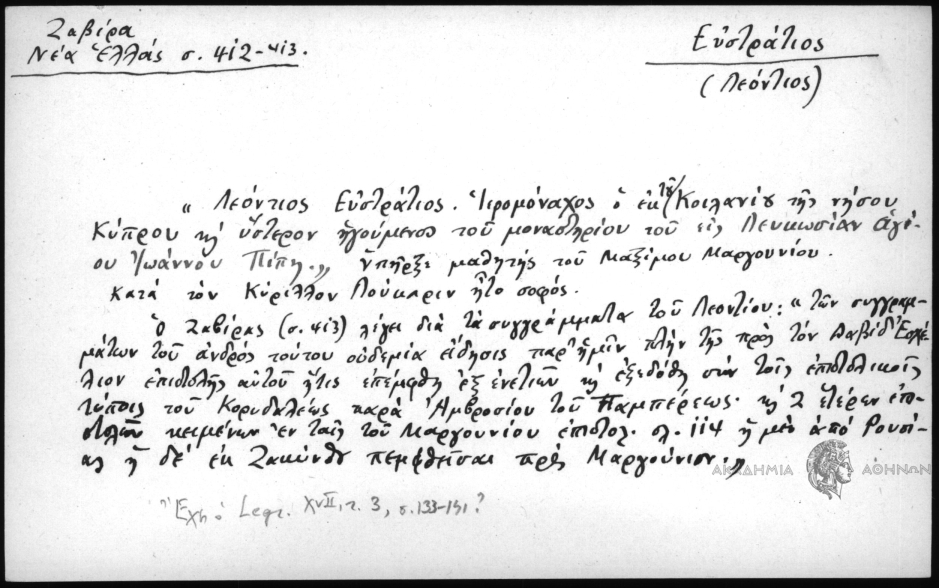 Ζαβίρα
Νέα Ἑλλάς σ. 412-413.
Εὐστράτιος
(Λεόντιος)
"Λεόντιος Εὐστράτιος. Ἱερομόναχος ὁ ἐκ τοῦ Κοιλανίου τῆς νήσου
Κύπρου κὴ ὕστερον ἡγούμενος τοῦ μοναστηρίου τοῦ εἰς Λευκωσίαν ἁγί-
ου Ἰωάννου Πίπη." ὑπῆρξε μαθητής τοῦ Μαξίμου Μαργουνίου.
Κατά τὸν Κύριλλον Λούκαριν ἦτο σοφός.
Ὁ Ζαβίρας (σ. 413) λέγει διὰ τὰ συγγράμματα τοῦ Λεοντίου: "τῶν συγγραμ-
μάτων τοῦ ἀνδρός τούτου οὐδεμία εἴδησις παρ' ἡμῖν πλὴν τῆς πρὸς τὸν Δαβίδ Ἐσχέ-
λιον ἐπιστολῆς αὐτοῦ ἥτις ἐπέμφθη ἐξ ἐνετιῶν κὴ ἐξεδόθη σὺν τοῖς ἐπιστολικοῖς
τύποις τοῦ Κορυδαλέως παρὰ Ἀμβροσίου τοῦ Παμπέρεως. κὴ 2 ἑτέρων ἐπι-
στολῶν κειμένων ἐν ταῖς τοῦ Μαργουνίου ἐπιστολ. σλ. 114 ἡ μὲν ἀπό Ρουσί-
ας ἡ δέ ἐκ Ζακύνθου πεμφθεῖσαι πρὸς Μαργούνιον."
ΑΚΑΔΗΜΙΑ ΑΘΗΝΩΝ
Legr. XVII, τ. 3, σ. 133-151?